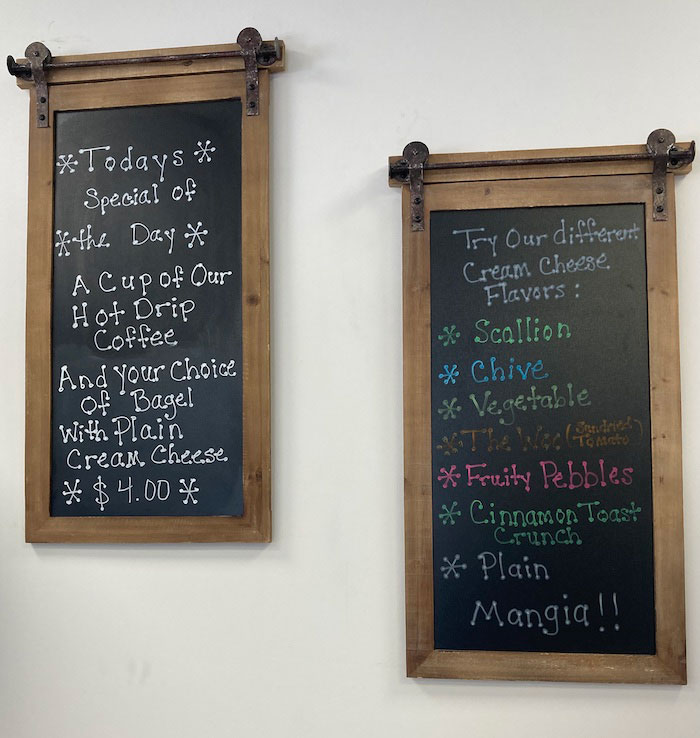 * Todays *
Special of
* the Day *
A Cup of Our
Hot Drip
Coffee
And your Choice
of Bagel
With Plain
Cream Cheese
* $4.00 *
Try Our different
Cream Cheese
Flavors:
* Scallion
* Chive
* Vegetable
* The Woc (Sundried
Tomato)
* Fruity Pebbles
* Cinnamon Toast
Crunch
* Plain
Mangia!!